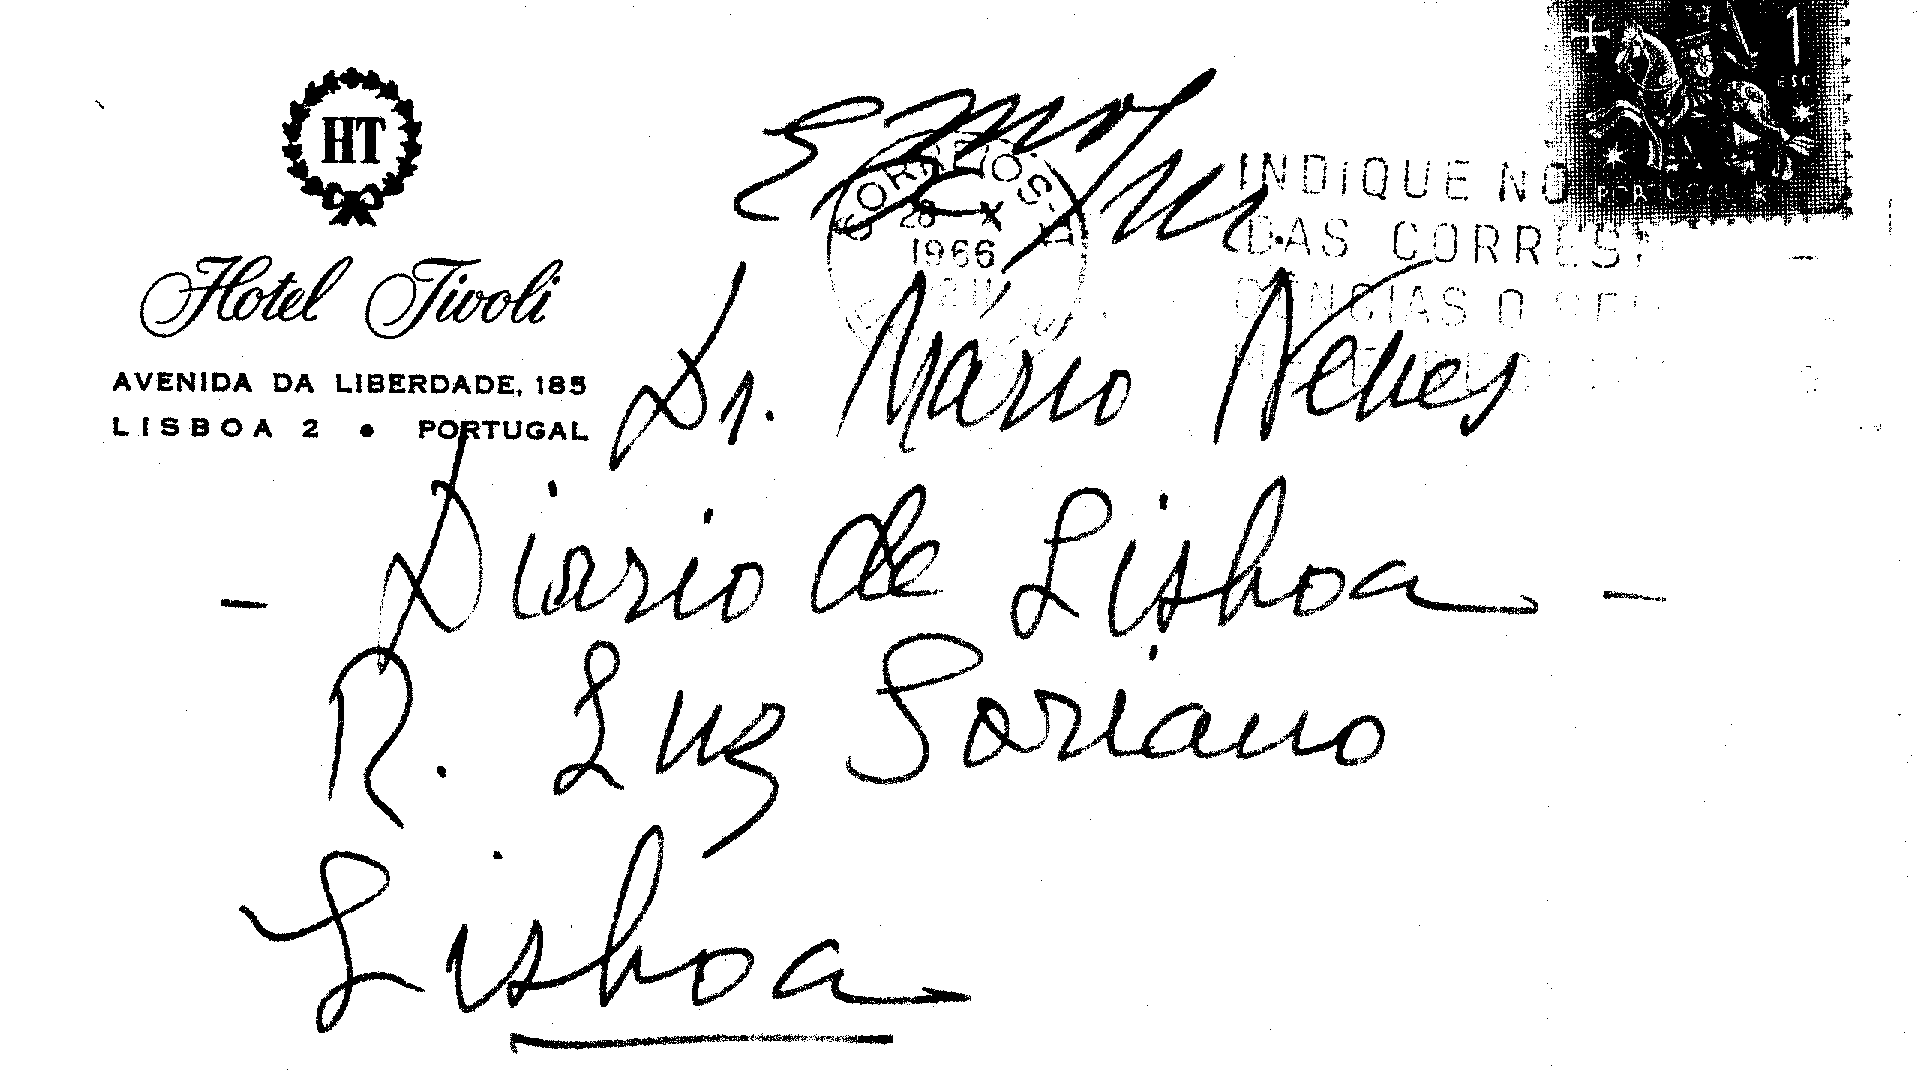 HT
Hotel Tivoli
AVENIDA DA LIBERDADE, 185
LISBOA 2 • PORTUGAL
1 ESC
PORTUGAL
CORREIOS
28 X
1966
INDIQUE NO
DAS CORRES
CIAS O
Exmo. Snr.
Dr. Mário Neves
- Diario de Lisboa -
R. Luz Soriano
Lisboa